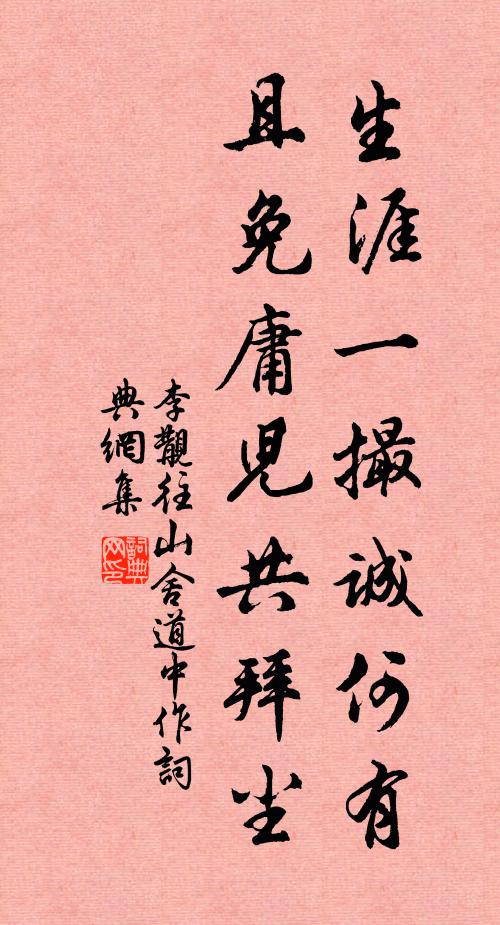 生涯一撮誠何有
且免庸兒共拜尘
李覯往山舍道中作詞
典網集
詞典
网印